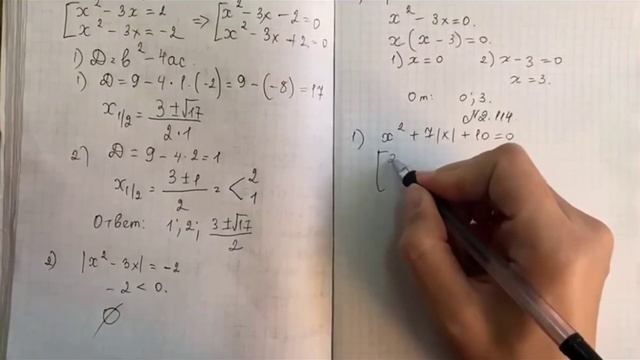 [x² - 3x = 2 => [x² - 3x - 2 = 0
[x² - 3x = -2 [x² - 3x + 2 = 0
1) D = b² - 4ac.
1) D = 9 - 4 · 1 · (-2) = 9 - (-8) = 17
x1/2 = (3 ± √17)/(2 · 1)
2) D = 9 - 4 · 2 = 1
x1/2 = (3 ± 1)/2 = < 2 1
Ответ: 1; 2; (3 ± √17)/2
2) |x² - 3x| = -2
- 2 < 0.
∅
x² - 3x = 0.
x(x - 3) = 0.
1) x = 0 2) x - 3 = 0
x = 3.
От: 0; 3.
№2.114.
1) x² + 7|x| + 10 = 0
[